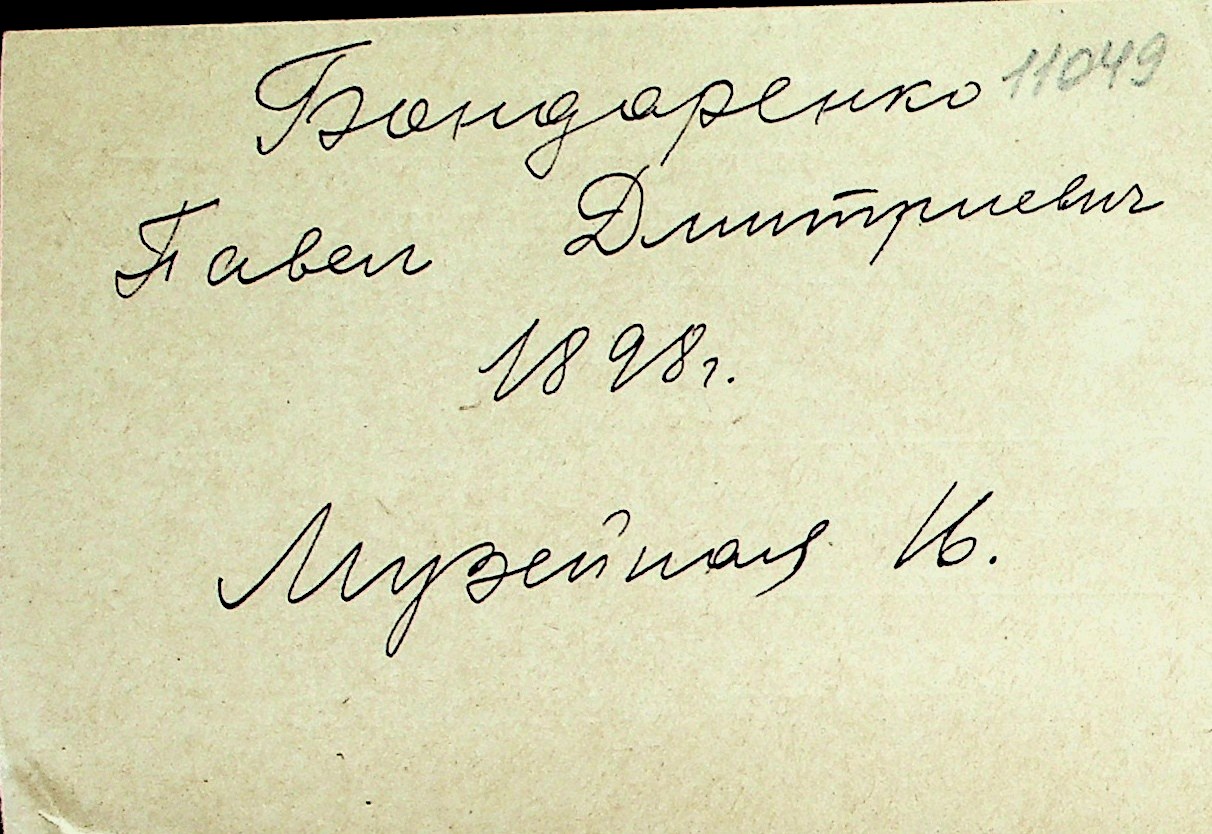 Бондаренко 11049
Павел Дмитриевич
1898г.
Музейная 16.